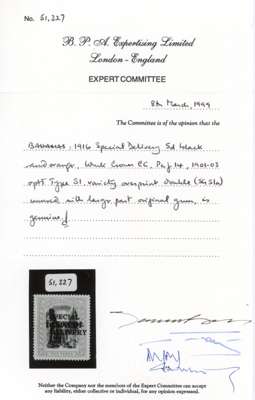 No. 51,227
B. P. A. Expertising Limited
London - England
EXPERT COMMITTEE
8th March, 1999
The Committee is of the opinion that the
BAHAMAS : 1916 Special Delivery 5d black
and orange, Wmk Crown CC, Perf 14, 1901-03
optd Type S1, variety overprint double (SG S1a)
unused with large part original gum, is
genuine
51,227
SPECIAL
DELIVERY
Neither the Company nor the members of the Expert Committee can accept
any liability, either collective or individual, for any opinion expressed.